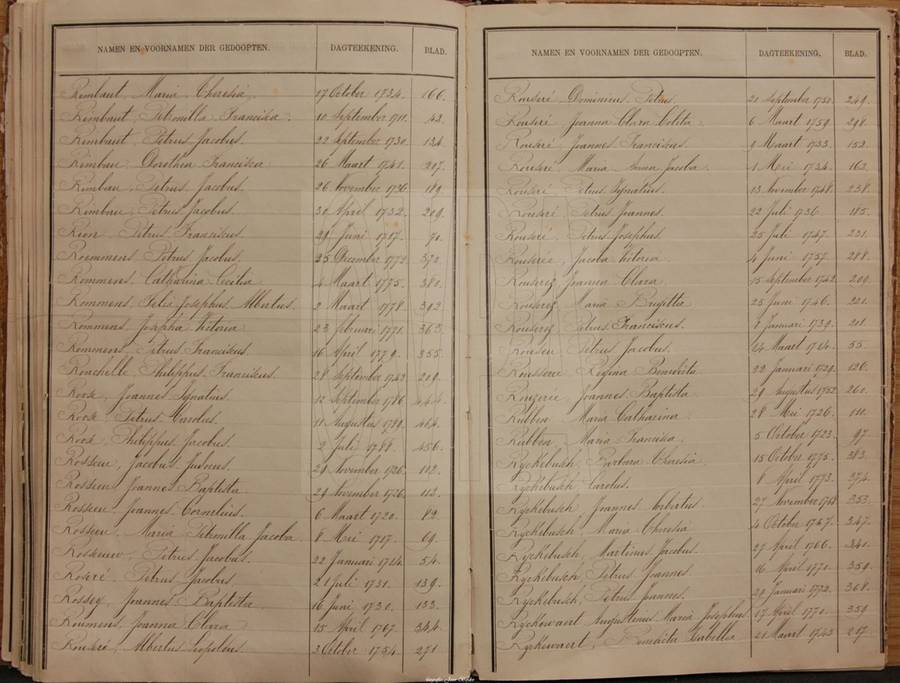 NAMEN EN VOORNAMEN DER GEDOOPTEN. DAGTEEKENING. BLAD.
Rimbaut, Maria Theresia. 17 October 1734. 166.
Rimbaut, Petronilla Francisca. 10 September 1711. 43.
Rimbaut Petrus Jacobus. 22 September 1730. 134.
Rimbau, Dorothea Francisca 26 Maart 1741. 207.
Rimbau, Petrus Jacobus. 26 November 1736 189.
Rimbau, Petrus Jacobus. 30 April 1732. 209.
Rion Petrus Franciscus. 29 Juni 1717. 70.
Roemmens Petrus Jacobus. 25 December 1772. 370.
Rommens, Catharina Cecilia 4 Maart 1775. 380.
Rommens Felix Josephus Albertus. 2 Maart 1778. 392
Rommens, Josepha Victoria 23 Februari 1771. 363.
Rommens, Petrus Franciscus. 16 April 1779. 355.
Ronchelle, Philippus Franciscus. 28 September 1742. 209.
Roose, Joannes Ignatius. 12 September 1786 444.
Roose Petrus Carolus. 11 Augustus 1790. 464.
Roose Philippus Jacobus. 2 Juli 1788. 456.
Rosseeu, Jacobus 29 November 1726. 112.
Rosseeu Joannes Baptista 29 November 1726 112.
Rosseeu, Joannes Cornelius. 6 Maart 1720. 82.
Rosseeu, Maria Petronilla Jacoba 8 Mei 1717. 69.
Rosseeuw, Petrus Jacobus. 22 Januari 1714. 54.
Roseré Petrus Jacobus 21 Juli 1731. 139.
Rossey, Joannes Baptista 16 Juni 1730. 133.
Roumens, Joanna Clara 15 April 1767. 344.
Rouseré, Albertus Leopoldus. 3 October 1754. 271.
NAMEN EN VOORNAMEN DER GEDOOPTEN. DAGTEEKENING. BLAD.
Rouseré Dominicus Petrus. 20 September 1750. 249.
Rouseré Joanna Clara Coleta. 6 Maart 1759. 298.
Rouseré, Joannes Franciscus. 9 Maart 1733. 152.
Rouseré, Maria Anna Jacoba. 1 Mei 1734. 162
Rouseré Petrus Ignatius. 13 November 1748. 238.
Rouseré Petrus Joannes. 22 Juli 1736. 185.
Rouseré, Petrus Josephus. 25 Juli 1747. 231.
Rouserée, Jacoba Victoria. 4 Juni 1757. 288.
Rouserez Joanna Clara. 15 September 1742. 209.
Rouserez Maria Brigitta. 25 Juni 1746. 221.
Rouserez Petrus Franciscus. 8 Januari 1739. 201.
Rouseu Petrus Jacobus. 14 Maart 1714. 55.
Rousseré Regina Benedicta. 22 Januari 1729. 126.
Rouzerie, Joannes Baptista. 29 Augustus 1752 260.
Rubben, Maria Catharina. 28 Mei 1726. 110.
Rubben, Maria Francisca. 5 October 1723. 97.
Ryckebusch, Barbara Theresia. 15 October 1775. 383.
Ryckebusch Carolus. 8 April 1773. 374.
Ryckebusch, Joannes Norbertus 27 November 1768 353.
Ryckebusch, Maria Theresia 4 October 1767. 347.
Ryckebusch, Martinus Jacobus. 27 April 1766. 340.
Ryckebusch, Petrus Joannes. 16 April 1771. 359.
Ryckebusch, Petrus Joannes. 29 Januari 1772. 368.
Ryckewaert Augustinus Maria Josephus 17 April 1770. 359
Ryckewaert, Benedicta Isabella 21 Maart 1743 217.